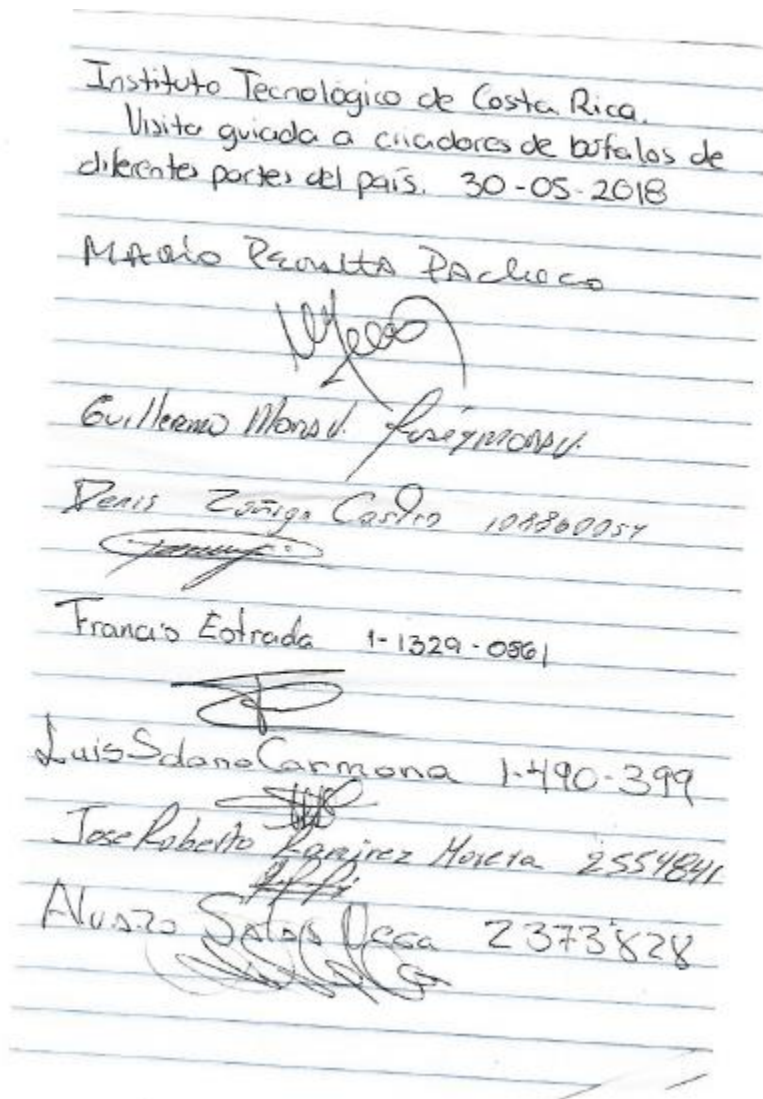 Instituto Tecnológico de Costa Rica.
Visita guiada a criadores de bufalos de
diferentes partes del país. 30-05-2018
Mario Peralta Pacheco
Guillermo
Denis Zúñiga Castro 108860054
Francis Estrada 1-1329-0561
Luis Solano Carmona 1-490-399
Jose Roberto Ramirez Morera 2554841
Alvaro Salas Vega 2373828